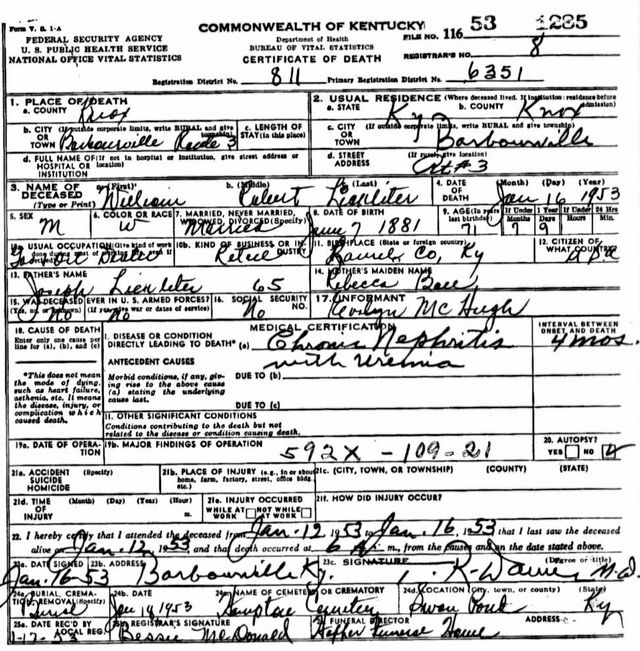 Form V. S. 1-A
FEDERAL SECURITY AGENCY
U. S. PUBLIC HEALTH SERVICE
NATIONAL OFFICE VITAL STATISTICS
COMMONWEALTH OF KENTUCKY
Department of Health
BUREAU OF VITAL STATISTICS
CERTIFICATE OF DEATH
FILE NO. 116 53 1285
REGISTRAR'S NO. 8
Registration District No. 811 Primary Registration District No. 6351
1. PLACE OF DEATH
a. COUNTY Knox
2. USUAL RESIDENCE (Where deceased lived. If institution: residence before admission)
a. STATE Ky b. COUNTY Knox
b. CITY (If outside corporate limits, write RURAL and give township) OR TOWN Barbourville Route 3
c. LENGTH OF STAY (in this place)
c. CITY (If outside corporate limits, write RURAL and give township) OR TOWN Barbourville
d. FULL NAME OF (If not in hospital or institution, give street address or location) HOSPITAL OR INSTITUTION
d. STREET ADDRESS (If rural, give location) Rt #3
3. NAME OF DECEASED (Type or Print)
a. (First) William b. (Middle) c. (Last)
4. DATE OF DEATH (Month) (Day) (Year) Jan 16 1953
5. SEX M
6. COLOR OR RACE W
7. MARRIED, NEVER MARRIED, WIDOWED, DIVORCED (Specify) Married
8. DATE OF BIRTH June 7 1881
9. AGE (In years last birthday) 71 If Under 1 Year 7 9 If Under 24 Hrs Hours Min.
10a. USUAL OCCUPATION (Give kind of work done during most of working life, even if retired)
10b. KIND OF BUSINESS OR INDUSTRY Retail
11. BIRTHPLACE (State or foreign country) Laurel, Co, Ky
12. CITIZEN OF WHAT COUNTRY?
13. FATHER'S NAME Joseph 65
14. MOTHER'S MAIDEN NAME Rebecca
15. WAS DECEASED EVER IN U. S. ARMED FORCES? (Yes, no, or unknown) (If yes, give war or dates of service) No no
16. SOCIAL SECURITY NO. No
17. INFORMANT Evelyn McHugh
18. CAUSE OF DEATH
Enter only one cause per line for (a), (b), and (c)
*This does not mean the mode of dying, such as heart failure, asthenia, etc. It means the disease, injury, or complication which caused death.
MEDICAL CERTIFICATION
INTERVAL BETWEEN ONSET AND DEATH
I. DISEASE OR CONDITION DIRECTLY LEADING TO DEATH* (a) Chronic Nephritis 4 mos.
with Uremia
ANTECEDENT CAUSES
Morbid conditions, if any, giving rise to the above cause (a) stating the underlying cause last.
DUE TO (b)
DUE TO (c)
II. OTHER SIGNIFICANT CONDITIONS
Conditions contributing to the death but not related to the disease or condition causing death.
19a. DATE OF OPERATION
19b. MAJOR FINDINGS OF OPERATION
592X - 109-21
20. AUTOPSY? YES NO
21a. ACCIDENT SUICIDE HOMICIDE (Specify)
21b. PLACE OF INJURY (e.g., in or about home, farm, factory, street, office bldg. etc.)
21c. (CITY, TOWN, OR TOWNSHIP) (COUNTY) (STATE)
21d. TIME OF INJURY (Month) (Day) (Year) (Hour) m.
21e. INJURY OCCURRED WHILE AT WORK NOT WHILE AT WORK
21f. HOW DID INJURY OCCUR?
22. I hereby certify that I attended the deceased from Jan. 12, 1953 to Jan. 16, 1953 that I last saw the deceased
alive on Jan. 12, 1953 and that death occurred at 6 A. m., from the causes and on the date stated above.
23a. DATE SIGNED Jan-16-53
23b. ADDRESS Barbourville Ky.
23c. SIGNATURE (Degree or title) M.D.
24a. BURIAL, CREMATION, REMOVAL (Specify) Burial
24b. DATE Jan 18 1953
24c. NAME OF CEMETERY OR CREMATORY Cemetery
24d. LOCATION (City, town, or county) (State) Ky
25a. DATE REC'D BY LOCAL REG. 1-17-53
25b. REGISTRAR'S SIGNATURE Bessie McDonald
FUNERAL DIRECTOR Funeral Home ADDRESS